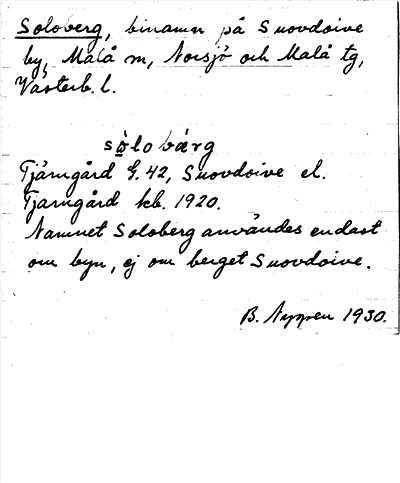 Soloberg, binamn på Suovdoive
by, Malå m, Norsjö och Malå tg,
Västerb. l.
sòlobárg
Tjärngård G. 42, Suovdoive el.
Tjärngård kb. 1920.
Namnet Soloberg användes endast
om byn, ej om berget Suovdoive.
B. Nyzren 1930.